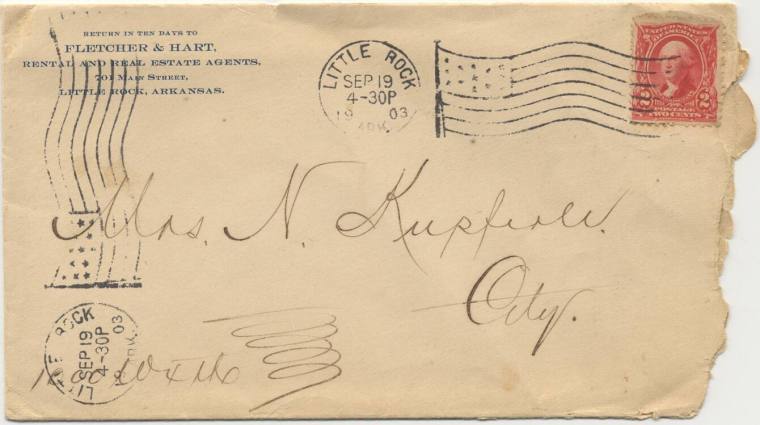 RETURN IN TEN DAYS TO
FLETCHER & HART,
RENTAL AND REAL ESTATE AGENTS,
701 MAIN STREET,
LITTLE ROCK, ARKANSAS.
LITTLE ROCK
SEP 19
4-30P
19 03
ARK.
UNITED STATES
OF AMERICA
2 2
POSTAGE
TWO CENTS
Mrs. N. Kupferle.
City.
ROCK
SEP 19
4-30P
03